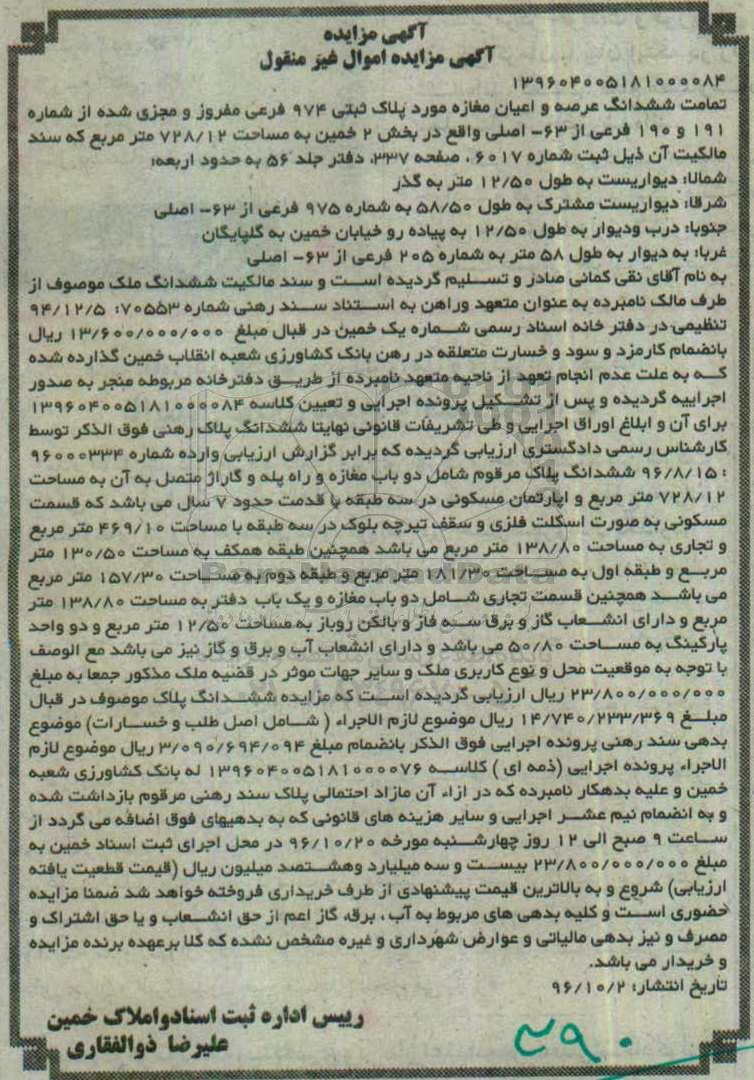 آگهی مزایده
آگهی مزایده اموال غیر منقول
۱۳۹۶۰۴۰۰۵۱۸۱۰۰۰۰۸۴
تمامت ششدانگ عرصه و اعیان مغازه مورد پلاک ثبتی ۹۷۴ فرعی مفروز و مجزی شده از شماره
۱۹۱ و ۱۹۰ فرعی از ۶۳- اصلی واقع در بخش ۲ خمین به مساحت ۷۲۸/۱۲ متر مربع که سند
مالکیت آن ذیل ثبت شماره ۶۰۱۷ ، صفحه ۳۳۷، دفتر جلد ۵۶ به حدود اربعه:
شمالا: دیواریست به طول ۱۲/۵۰ متر به گذر
شرقا: دیواریست مشترک به طول ۵۸/۵۰ به شماره ۹۷۵ فرعی از ۶۳- اصلی
جنوبا: درب ودیوار به طول ۱۲/۵۰ به پیاده رو خیابان خمین به گلپایگان
غربا: به دیوار به طول ۵۸ متر به شماره ۲۰۵ فرعی از ۶۳- اصلی
به نام آقای نقی کمانی صادر و تسلیم گردیده است و سند مالکیت ششدانگ ملک موصوف از
طرف مالک نامبرده به عنوان متعهد وراهن به استناد سند رهنی شماره ۷۰۵۵۳: ۹۴/۱۲/۵
تنظیمی در دفتر خانه اسناد رسمی شماره یک خمین در قبال مبلغ ۱۳/۶۰۰/۰۰۰/۰۰۰ ریال
بانضمام کارمزد و سود و خسارت متعلقه در رهن بانک کشاورزی شعبه انقلاب خمین گذارده شده
که به علت عدم انجام تعهد از ناحیه متعهد نامبرده از طریق دفترخانه مربوطه منجر به صدور
اجراییه گردیده و پس از تشکیل پرونده اجرایی و تعیین کلاسه ۱۳۹۶۰۴۰۰۵۱۸۱۰۰۰۰۸۴
برای آن و ابلاغ اوراق اجرایی و طی تشریفات قانونی نهایتا ششدانگ پلاک رهنی فوق الذکر توسط
کارشناس رسمی دادگستری ارزیابی گردیده که برابر گزارش ارزیابی وارده شماره ۹۶۰۰۰۳۳۴
: ۹۶/۸/۱۵ ششدانگ پلاک مرقوم شامل دو باب مغازه و راه پله و گاراژ متصل به آن به مساحت
۷۲۸/۱۲ متر مربع و اپارتمان مسکونی در سه طبقه با قدمت حدود ۷ سال می باشد که قسمت
مسکونی به صورت اسکلت فلزی و سقف تیرچه بلوک در سه طبقه با مساحت ۴۶۹/۱۰ متر مربع
و تجاری به مساحت ۱۳۸/۸۰ متر مربع می باشد همچنین طبقه همکف به مساحت ۱۳۰/۵۰ متر
مربع و طبقه اول به مساحت ۱۸۱/۳۰ متر مربع و طبقه دوم به مساحت ۱۵۷/۳۰ متر مربع
می باشد همچنین قسمت تجاری شامل دو باب مغازه و یک باب دفتر به مساحت ۱۳۸/۸۰ متر
مربع و دارای انشعاب گاز و برق سه فاز و بالکن روباز به مساحت ۱۲/۵۰ متر مربع و دو واحد
پارکینگ به مساحت ۵۰/۸۰ می باشد و دارای انشعاب آب و برق و گاز نیز می باشد مع الوصف
با توجه به موقعیت محل و نوع کاربری ملک و سایر جهات موثر در قضیه ملک مذکور جمعا به مبلغ
۲۳/۸۰۰/۰۰۰/۰۰۰ ریال ارزیابی گردیده است که مزایده ششدانگ پلاک موصوف در قبال
مبلغ ۱۴/۷۴۰/۲۳۳/۳۶۹ ریال موضوع لازم الاجراء ( شامل اصل طلب و خسارات) موضوع
بدهی سند رهنی پرونده اجرایی فوق الذکر بانضمام مبلغ ۳/۰۹۰/۶۹۴/۰۹۴ ریال موضوع لازم
الاجراء پرونده اجرایی (ذمه ای ) کلاسه ۱۳۹۶۰۴۰۰۵۱۸۱۰۰۰۰۷۶ له بانک کشاورزی شعبه
خمین و علیه بدهکار نامبرده که در ازاء آن مازاد احتمالی پلاک سند رهنی مرقوم بازداشت شده
و به انضمام نیم عشر اجرایی و سایر هزینه های قانونی که به بدهیهای فوق اضافه می گردد از
ساعت ۹ صبح الی ۱۲ روز چهارشنبه مورخه ۹۶/۱۰/۲۰ در محل اجرای ثبت اسناد خمین به
مبلغ ۲۳/۸۰۰/۰۰۰/۰۰۰ بیست و سه میلیارد وهشتصد میلیون ریال (قیمت قطعیت یافته
ارزیابی) شروع و به بالاترین قیمت پیشنهادی از طرف خریداری فروخته خواهد شد ضمنا مزایده
حضوری است و کلیه بدهی های مربوط به آب ، برق، گاز اعم از حق انشعاب و یا حق اشتراک و
مصرف و نیز بدهی مالیاتی و عوارض شهرداری و غیره مشخص نشده که کلا برعهده برنده مزایده
و خریدار می باشد.
تاریخ انتشار: ۹۶/۱۰/۲
رییس اداره ثبت اسنادواملاک خمین
علیرضا ذوالفقاری
۲۹۰